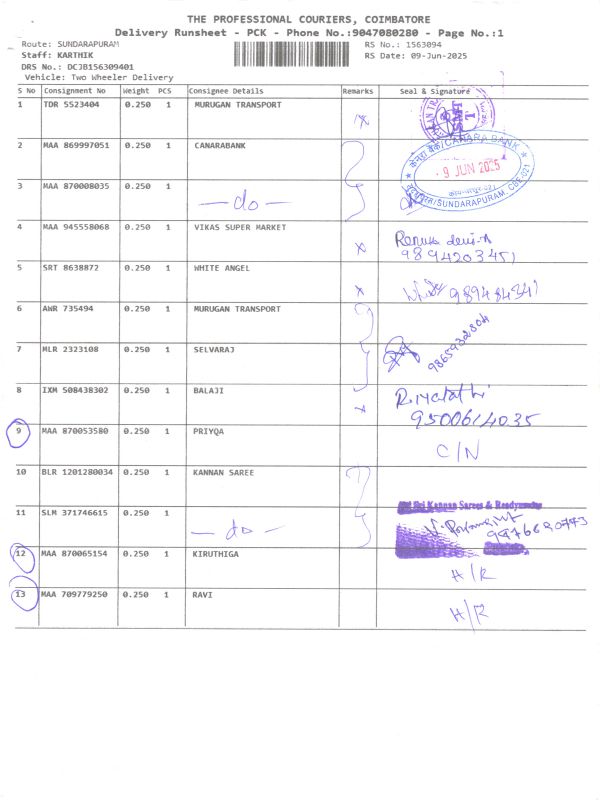 THE PROFESSIONAL COURIERS, COIMBATORE
Delivery Runsheet - PCK - Phone No.:9047080280 - Page No.:1
Route: SUNDARAPURAM
RS No.: 1563094
Staff: KARTHIK
RS Date: 09-Jun-2025
DRS No.: DCJB156309401
Vehicle: Two Wheeler Delivery
S No Consignment No Weight PCS Consignee Details Remarks Seal & Signature
1 TDR 5523404 0.250 1 MURUGAN TRANSPORT
2 MAA 869997051 0.250 1 CANARABANK
CANARA BANK
9 JUN 2025
SUNDARAPURAM, CBE-021
3 MAA 870008035 0.250 1 — do —
4 MAA 945558068 0.250 1 VIKAS SUPER MARKET x Renuka devi.A
9894203451
5 SRT 8638872 0.250 1 WHITE ANGEL x 989484341
6 AWR 735494 0.250 1 MURUGAN TRANSPORT
7 MLR 2323108 0.250 1 SELVARAJ 9865932804
8 IXM 508438302 0.250 1 BALAJI x R. Malathi
9500614035
9 MAA 870053580 0.250 1 PRIYQA C/N
10 BLR 1201280034 0.250 1 KANNAN SAREE
Sri Kannan Sarees & Readymades
11 SLM 371746615 0.250 1 — do — 9976690773
12 MAA 870065154 0.250 1 KIRUTHIGA H/R
13 MAA 709779250 0.250 1 RAVI H/R